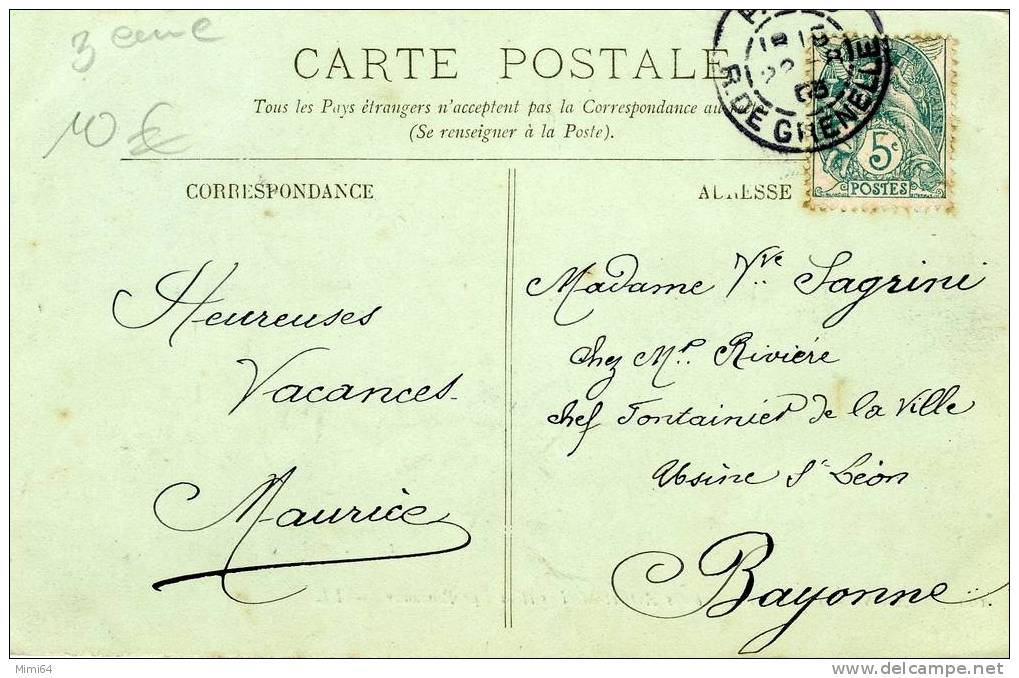 3 eme
10 €
CARTE POSTALE
Tous les Pays étrangers n'acceptent pas la Correspondance au
(Se renseigner à la Poste).
R. DE GRENELLE
5c
POSTES
CORRESPONDANCE
ADRESSE
Heureuses
Vacances
Maurice
Madame Vve Sagrini
chez Mr. Rivière
chef Fontainier de la Ville
Usine St Léon
Bayonne
Mimi64
delcampe.net